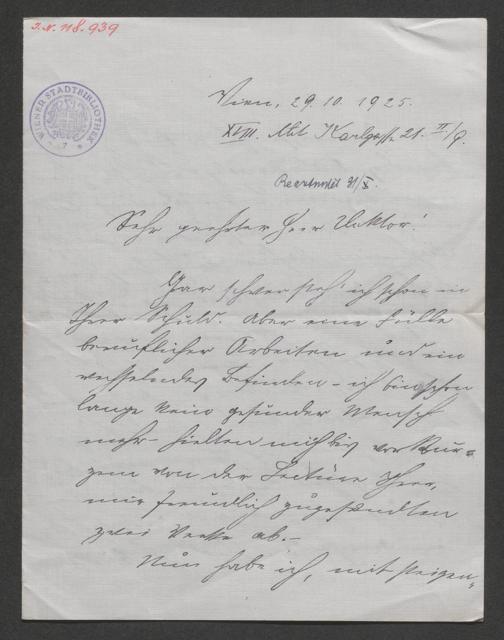 I.N. 118.939
WIENER STADTBIBLIOTHEK
Wien, 29. 10. 1925.
XVIII. Karlgasse 21. II/9.
Beantwortet 31/X.
Sehr geehrter Herr Doktor!
Gar schwer steh' ich schon in
Ihrer Schuld. Aber eine Fülle
beruflicher Arbeiten und ein
wechselndes Befinden – ich bin schon
lange kein gesunder Mensch
mehr – hielten mich bis vor kur=
zem von der Lectüre Ihrer,
mir freundlich zugesandten
zwei Werke ab. –
Nun habe ich, mit steigen=